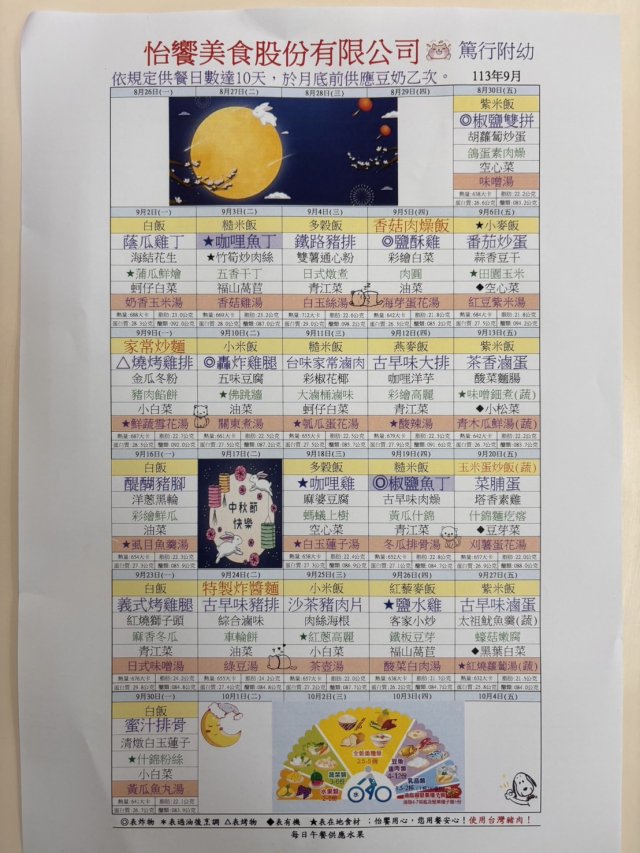 怡饗美食股份有限公司 篤行附幼
依規定供餐日數達10天，於月底前供應豆奶乙次。 113年9月
8月26日(一) 8月27日(二) 8月28日(三) 8月29日(四) 8月30日(五)
紫米飯
◎椒鹽雙拼
胡蘿蔔炒蛋
鴿蛋素肉燥
空心菜
味噌湯
9月2日(一) 9月3日(二) 9月4日(三) 9月5日(四) 9月6日(五)
白飯 糙米飯 多穀飯 香菇肉燥飯 ★小麥飯
蔭瓜雞丁 ★咖哩魚丁 鐵路豬排 ◎鹽酥雞 番茄炒蛋
海結花生 ★竹筍炒肉絲 雙薯通心粉 彩繪白菜 蒜香豆干
★蒲瓜鮮燴 五香干丁 日式燉煮 肉圓 ★田園玉米
蚵仔白菜 福山萵苣 青江菜 油菜 ◆空心菜
奶香玉米湯 香菇雞湯 白玉絲湯 海芽蛋花湯 紅豆紫米湯
9月9日(一) 9月10日(二) 9月11日(三) 9月12日(四) 9月13日(五)
家常炒麵 小米飯 糙米飯 燕麥飯 紫米飯
△燒烤雞排 ◎轟炸雞腿 台味家常滷肉 古早味大排 茶香滷蛋
金瓜冬粉 五味豆腐 彩椒花椰 咖哩洋芋 酸菜麵腸
豬肉餡餅 ★佛跳牆 大滷桶滷味 彩繪高麗 ★味噌細煮(蔬)
小白菜 油菜 蚵仔白菜 青江菜 ◆小松菜
★鮮蔬雪花湯 關東煮湯 ★瓠瓜蛋花湯 ★酸辣湯 青木瓜鮮湯(蔬)
9月16日(一) 9月17日(二) 9月18日(三) 9月19日(四) 9月20日(五)
白飯 多穀飯 糙米飯 玉米蛋炒飯(蔬)
醍醐豬腳 中秋節快樂 ★咖哩雞 ◎椒鹽魚丁 菜脯蛋
洋蔥黑輪 麻婆豆腐 古早味肉燥 塔香素雞
彩繪鮮瓜 螞蟻上樹 黃瓜什錦 什錦麵疙瘩
油菜 空心菜 青江菜 ◆豆芽菜
★虱目魚羹湯 ★白玉蓮子湯 冬瓜排骨湯 刈薯蛋花湯
9月23日(一) 9月24日(二) 9月25日(三) 9月26日(四) 9月27日(五)
白飯 特製炸醬麵 小米飯 紅藜麥飯 紫米飯
義式烤雞腿 古早味豬排 沙茶豬肉片 ★鹽水雞 古早味滷蛋
紅燒獅子頭 綜合滷味 肉絲海根 客家小炒 太祖魷魚羹(蔬)
麻香冬瓜 車輪餅 ★紅蔥高麗 鐵板豆芽 蠔菇嫩腐
青江菜 油菜 小白菜 福山萵苣 ◆黑葉白菜
日式味噌湯 綠豆湯 茶壺湯 酸菜白肉湯 ★紅燒蘿蔔湯(蔬)
9月30日(一) 10月1日(二) 10月2日(三) 10月3日(四) 10月4日(五)
白飯
蜜汁排骨
清燉白玉蓮子
★什錦粉絲
小白菜
黃瓜魚丸湯
◎表炸物 ＊表過油後烹調 △表烤物 ◆表有機 ★表在地食材 ；怡饗用心，您用餐安心！使用台灣豬肉！
每日午餐供應水果